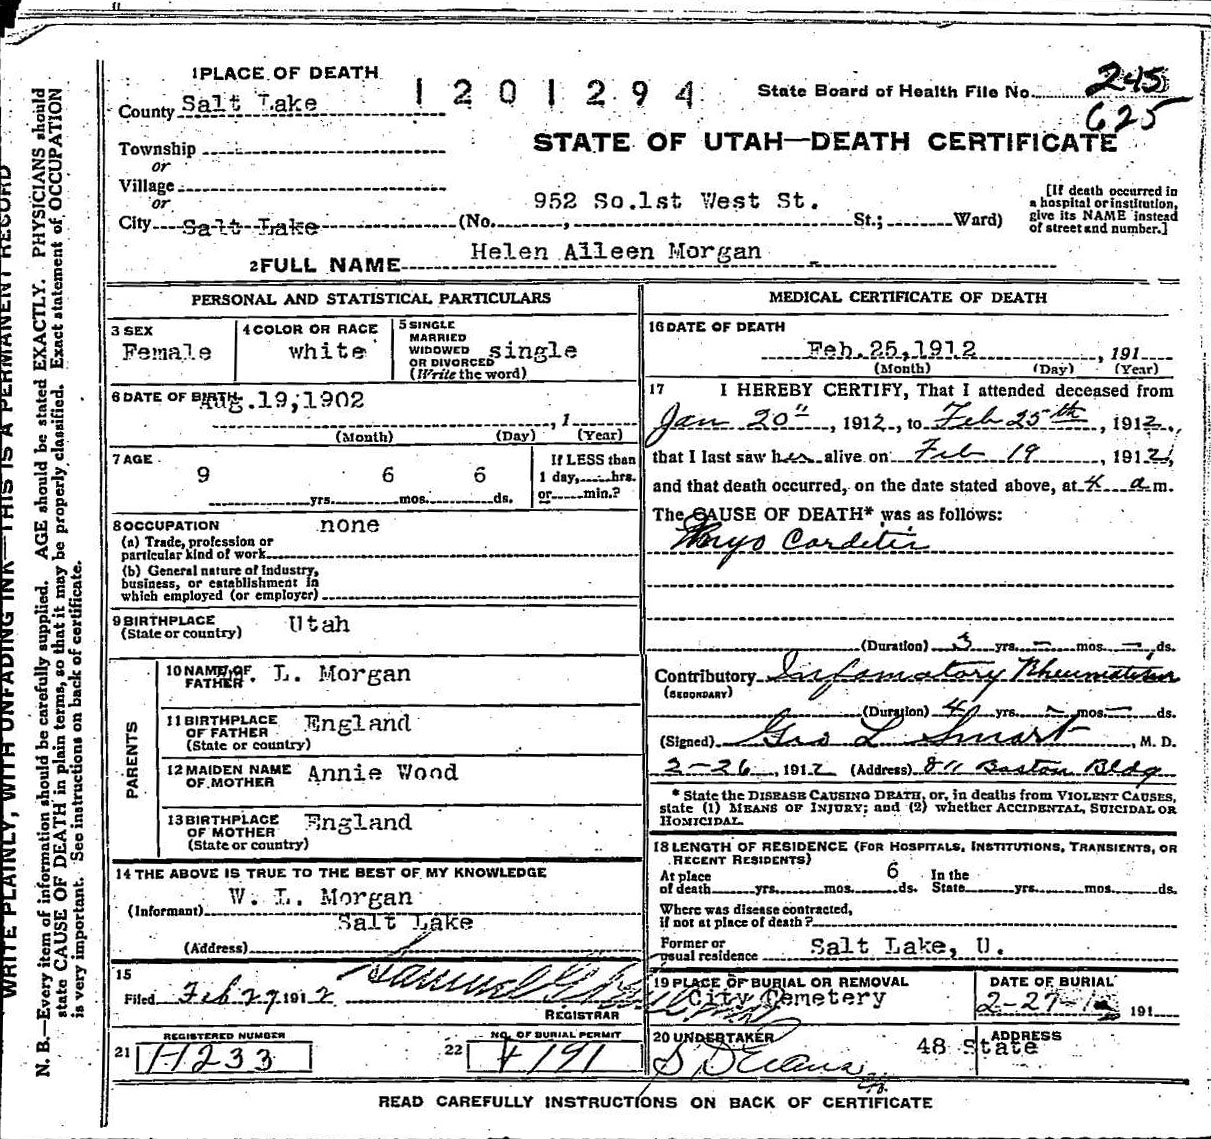 1 PLACE OF DEATH
County Salt Lake
1201294
State Board of Health File No. 245
625
STATE OF UTAH—DEATH CERTIFICATE
Township
or
Village
or
City Salt Lake (No. 952 So.1st West St. St.; Ward)
[If death occurred in a hospital or institution, give its NAME instead of street and number.]
2 FULL NAME Helen Alleen Morgan
PERSONAL AND STATISTICAL PARTICULARS
3 SEX
Female
4 COLOR OR RACE
white
5 SINGLE
MARRIED
WIDOWED
OR DIVORCED
(Write the word)
single
6 DATE OF BIRTH
Aug.19,1902
, 1
(Month) (Day) (Year)
7 AGE
9 yrs. 6 mos. 6 ds.
If LESS than
1 day, hrs.
or min.?
8 OCCUPATION none
(a) Trade, profession or
particular kind of work
(b) General nature of industry,
business, or establishment in
which employed (or employer)
9 BIRTHPLACE
(State or country)
Utah
PARENTS
10 NAME OF
FATHER
W. L. Morgan
11 BIRTHPLACE
OF FATHER
(State or country)
England
12 MAIDEN NAME
OF MOTHER
Annie Wood
13 BIRTHPLACE
OF MOTHER
(State or country)
England
14 THE ABOVE IS TRUE TO THE BEST OF MY KNOWLEDGE
(Informant) W. L. Morgan
Salt Lake
(Address)
15
Filed Feb 27, 1912
REGISTRAR
REGISTERED NUMBER
21 H233
NO. OF BURIAL PERMIT
22 4191
MEDICAL CERTIFICATE OF DEATH
16 DATE OF DEATH
Feb.25,1912 , 191
(Month) (Day) (Year)
17 I HEREBY CERTIFY, That I attended deceased from
Jan 20", 1912, to Feb 25th, 1912,
that I last saw her alive on Feb 19, 1912,
and that death occurred, on the date stated above, at 4 a m.
The CAUSE OF DEATH* was as follows:
Myo Carditis
(Duration) 3 yrs. – mos. – ds.
Contributory Inflamatory Rheumatism
(SECONDARY)
(Duration) 4 yrs. – mos. – ds.
(Signed) Geo L Smart, M. D.
2-26, 1912 (Address) 811 Boston Bldg
* State the DISEASE CAUSING DEATH, or, in deaths from VIOLENT CAUSES,
state (1) MEANS OF INJURY; and (2) whether ACCIDENTAL, SUICIDAL OR
HOMICIDAL.
18 LENGTH OF RESIDENCE (FOR HOSPITALS, INSTITUTIONS, TRANSIENTS, OR
RECENT RESIDENTS)
At place In the
of death yrs. mos. 6 ds. State yrs. mos. ds.
Where was disease contracted,
if not at place of death?
Former or
usual residence Salt Lake, U.
19 PLACE OF BURIAL OR REMOVAL
City Cemetery
DATE OF BURIAL
2-27-12 191
20 UNDERTAKER
S D Evans
ADDRESS
48 State
READ CAREFULLY INSTRUCTIONS ON BACK OF CERTIFICATE
WRITE PLAINLY, WITH UNFADING INK—THIS IS A PERMANENT RECORD
N. B.—Every item of information should be carefully supplied. AGE should be stated EXACTLY. PHYSICIANS should
state CAUSE OF DEATH in plain terms, so that it may be properly classified. Exact statement of OCCUPATION
is very important. See instructions on back of certificate.